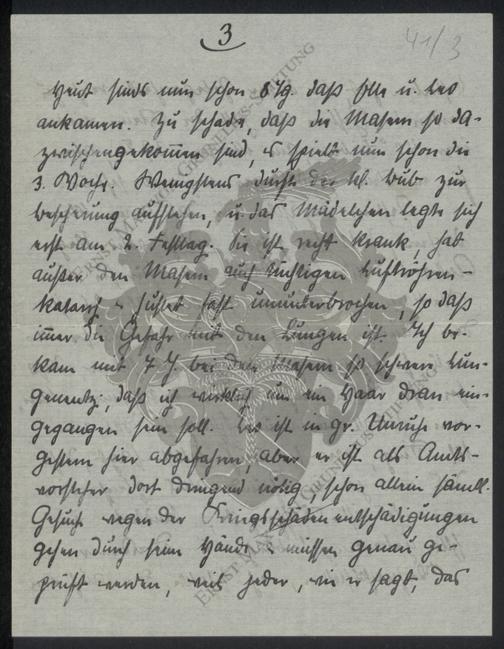 3
41/3
Heut sinds nun schon 8 Tg. daß Elle u. Leo
ankamen. Zu schade, daß die Masern so da-
zwischengekommen sind, es spielt nun schon die
3. Woche. Wenigstens durfte der kl. Bub zur
Bescherung aufstehen, u. das Mädelchen legte sich
erst am 2. Festtag. Sie ist recht krank, hat
außer den Masern auch tüchtigen Luftröhren-
katarrh u. hustet fast ununterbrochen, so daß
immer die Gefahr mit den Lungen ist. Ich be-
kam mit 7 J. bei den Masern so schwere Lun-
genentz., daß ich wirklich um ein Haar dran ein-
gegangen sein soll. Leo ist in gr. Unruhe vor-
gestern hier abgefahren, aber er ist als Amts-
vorsteher dort dringend nötig, schon allein sämtl.
Gesuche wegen der Kriegsschädenentschädigungen
gehen durch seine Hände u. müssen genau ge-
prüft werden, weil jeder, wie er sagt, das